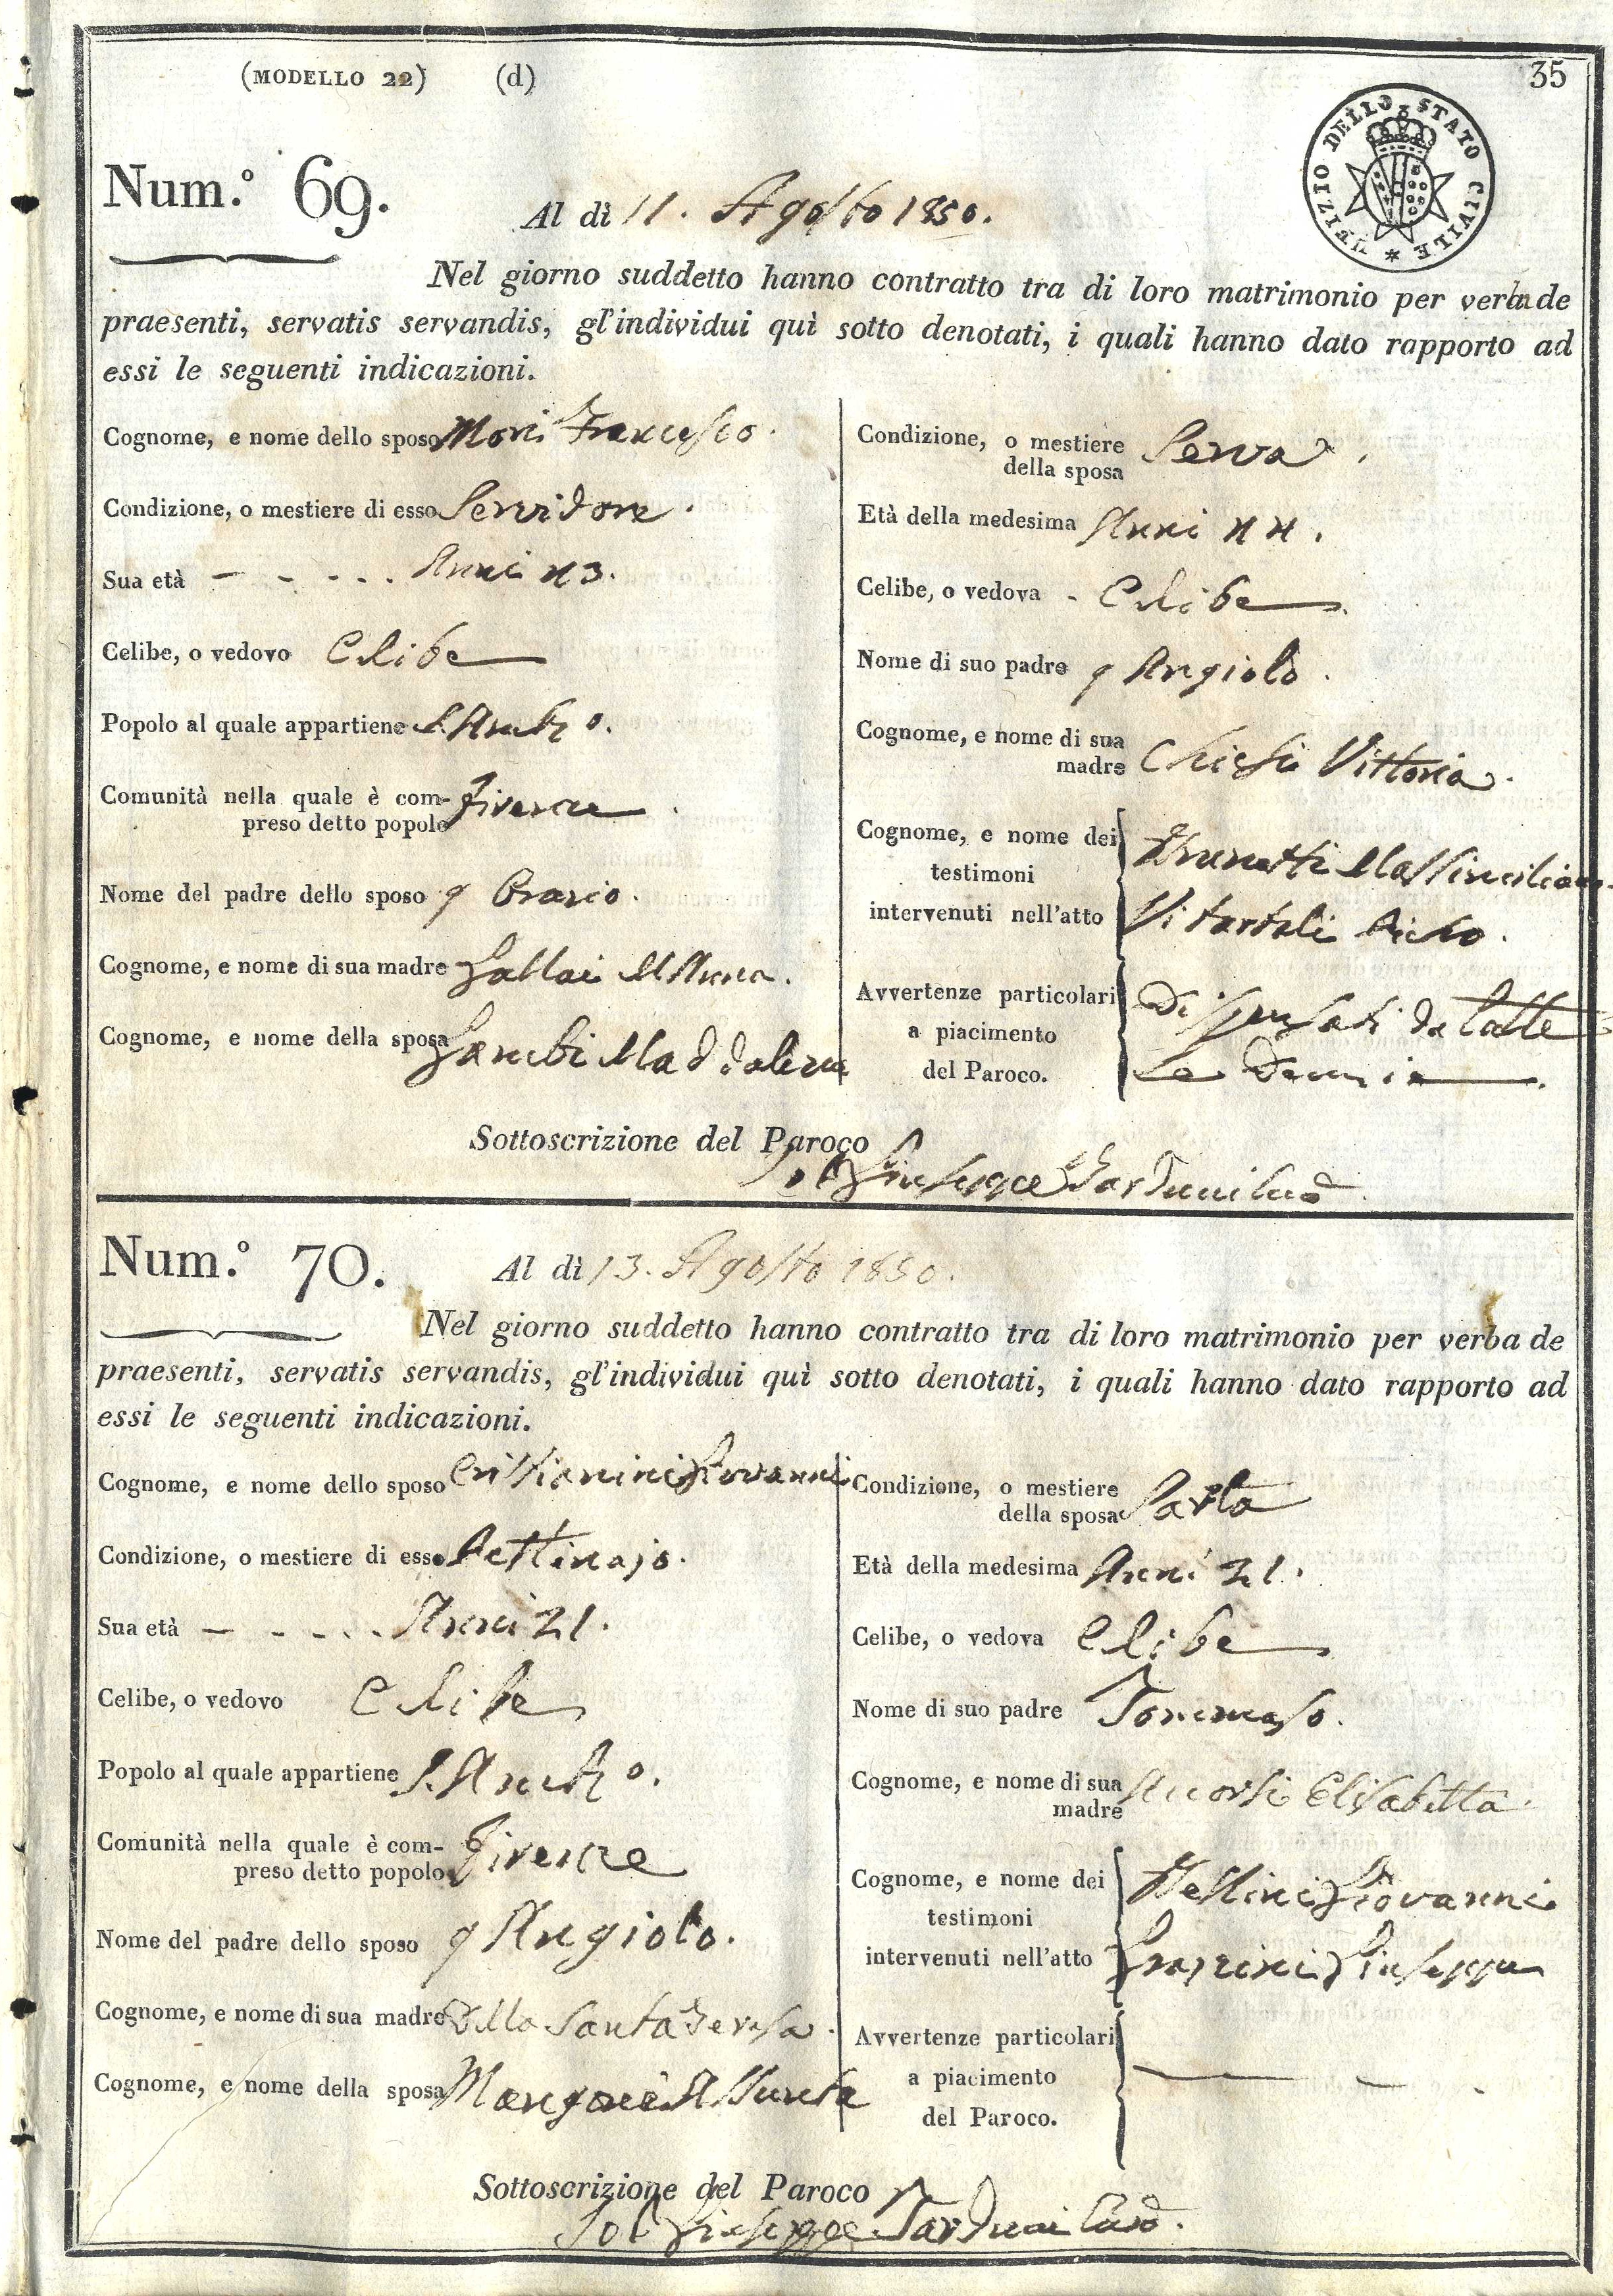 (MODELLO 22) (d) 35
UFIZIO DELLO STATO CIVILE *
Num.º 69.
Al dì 11. Agosto 1850.
Nel giorno suddetto hanno contratto tra di loro matrimonio per verba de
praesenti, servatis servandis, gl'individui quì sotto denotati, i quali hanno dato rapporto ad
essi le seguenti indicazioni.
Cognome, e nome dello sposo Mori Francesco.
Condizione, o mestiere di esso Servidore.
Sua età - - - . . . Anni 43.
Celibe, o vedovo Celibe
Popolo al quale appartiene S. Amb.º
Comunità nella quale è com-
preso detto popolo Firenze
Nome del padre dello sposo q Orazio.
Cognome, e nome di sua madre Gallai M Anna.
Cognome, e nome della sposa Zambi Maddalena
Condizione, o mestiere
della sposa Serva.
Età della medesima Anni 44.
Celibe, o vedova - Celibe
Nome di suo padre q Angiolo.
Cognome, e nome di sua
madre Chiesi Vittoria.
Cognome, e nome dei
testimoni
intervenuti nell'atto
Brunetti Massimiliano.
Vitartoli
Avvertenze particolari
a piacimento
del Paroco.
Dispensati da tutte
le Denunzie
Sottoscrizione del Paroco
Giuseppe Tarduci
Num.º 70.
Al dì 13. Agosto 1850.
Nel giorno suddetto hanno contratto tra di loro matrimonio per verba de
praesenti, servatis servandis, gl'individui quì sotto denotati, i quali hanno dato rapporto ad
essi le seguenti indicazioni.
Cognome, e nome dello sposo Cristianini Giovanni
Condizione, o mestiere di esso Pettinajo.
Sua età - - - . . . Anni 21.
Celibe, o vedovo Celibe
Popolo al quale appartiene S. Amb.º
Comunità nella quale è com-
preso detto popolo Firenze
Nome del padre dello sposo q Angiolo.
Cognome, e nome di sua madre Della Santa Teresa.
Cognome, e nome della sposa Mangani Assunta
Condizione, o mestiere
della sposa Sarta
Età della medesima Anni 21.
Celibe, o vedova Celibe
Nome di suo padre Tommaso.
Cognome, e nome di sua
madre Accorsi Elisabetta.
Cognome, e nome dei
testimoni
intervenuti nell'atto
Bellini Giovanni
Grazzini Giuseppe
Avvertenze particolari
a piacimento
del Paroco.
Sottoscrizione del Paroco
Giuseppe Tarduci